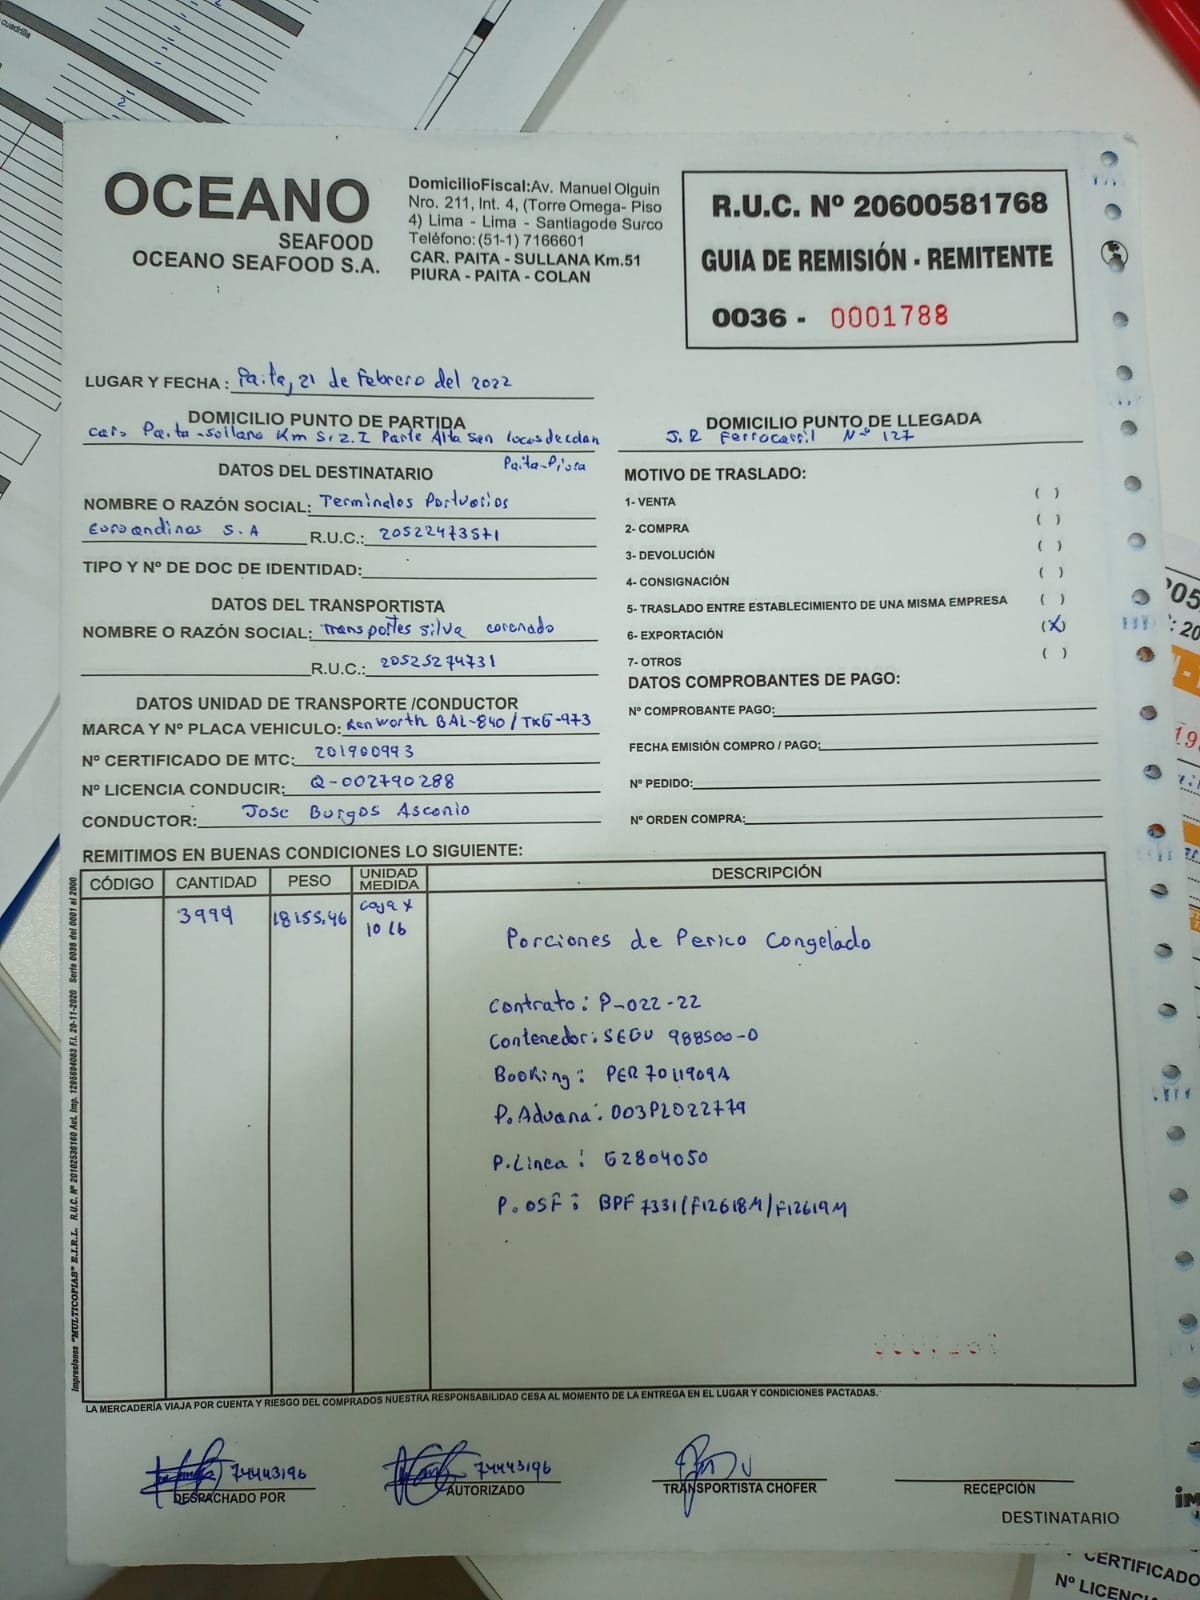 cuadrilla
OCEANO
SEAFOOD
OCEANO SEAFOOD S.A.
DomicilioFiscal:Av. Manuel Olguin
Nro. 211, Int. 4, (Torre Omega- Piso
4) Lima - Lima - Santiagode Surco
Teléfono:(51-1) 7166601
CAR. PAITA - SULLANA Km.51
PIURA - PAITA - COLAN
R.U.C. Nº 20600581768
GUIA DE REMISIÓN - REMITENTE
0036 - 0001788
LUGAR Y FECHA : Paita, 21 de Febrero del 2022
DOMICILIO PUNTO DE PARTIDA
Car. Paita-Sullana Km 51 Z.I Parte Alta San Lucas de colan
Paita-Piura
DOMICILIO PUNTO DE LLEGADA
J.R Ferrocarril Nº 127
DATOS DEL DESTINATARIO
NOMBRE O RAZÓN SOCIAL: Terminales Portuarios
Euroandinos S.A R.U.C.: 20522473571
TIPO Y Nº DE DOC DE IDENTIDAD:
DATOS DEL TRANSPORTISTA
NOMBRE O RAZÓN SOCIAL: Transportes silva coronado
R.U.C.: 20525274731
DATOS UNIDAD DE TRANSPORTE /CONDUCTOR
MARCA Y Nº PLACA VEHICULO: Kenworth BAL-840/TKG-973
Nº CERTIFICADO DE MTC: 201900993
Nº LICENCIA CONDUCIR: Q-002790288
CONDUCTOR: Jose Burgos Ascanio
MOTIVO DE TRASLADO:
1- VENTA ( )
2- COMPRA ( )
3- DEVOLUCIÓN ( )
4- CONSIGNACIÓN ( )
5- TRASLADO ENTRE ESTABLECIMIENTO DE UNA MISMA EMPRESA ( )
6- EXPORTACIÓN (X)
7- OTROS ( )
DATOS COMPROBANTES DE PAGO:
Nº COMPROBANTE PAGO:
FECHA EMISIÓN COMPRO / PAGO:
Nº PEDIDO:
Nº ORDEN COMPRA:
REMITIMOS EN BUENAS CONDICIONES LO SIGUIENTE:
CÓDIGO CANTIDAD PESO UNIDAD MEDIDA DESCRIPCIÓN
3999 18155.46 caja x
10 lb
Porciones de Perico Congelado
Contrato: P-022-22
Contenedor: SEGU 988500-0
Booking: PER7011909A
P.Aduana: 003P2022779
P.Linea: G2804050
P.OSF: BPF7331/F12618M/F12619M
Impresiones "MULTICOPIAS" E.I.R.L. R.U.C. Nº 20102536160 Aut. Imp. 1205604083 F.I. 20-11-2020 Serie 0036 del 0001 al 2000
LA MERCADERÍA VIAJA POR CUENTA Y RIESGO DEL COMPRADOS NUESTRA RESPONSABILIDAD CESA AL MOMENTO DE LA ENTREGA EN EL LUGAR Y CONDICIONES PACTADAS.
74443196
DESPACHADO POR
74443196
AUTORIZADO
TRANSPORTISTA CHOFER
RECEPCIÓN
DESTINATARIO
CERTIFICADO